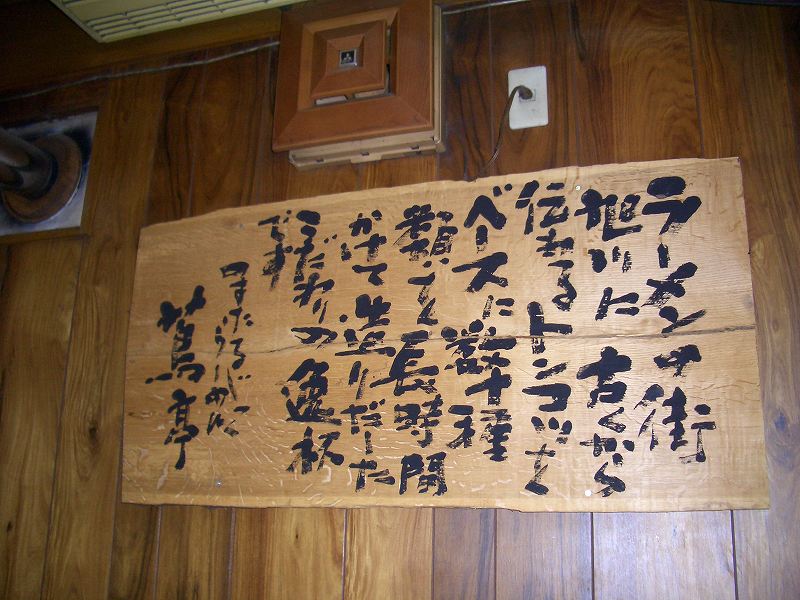 ラーメンの街
旭川に古くから
伝わるトンコツを
ベースに数十種
類、そして長時間
かけて造りだした
こだわりの逸杯
です
らーめん
蔦亭